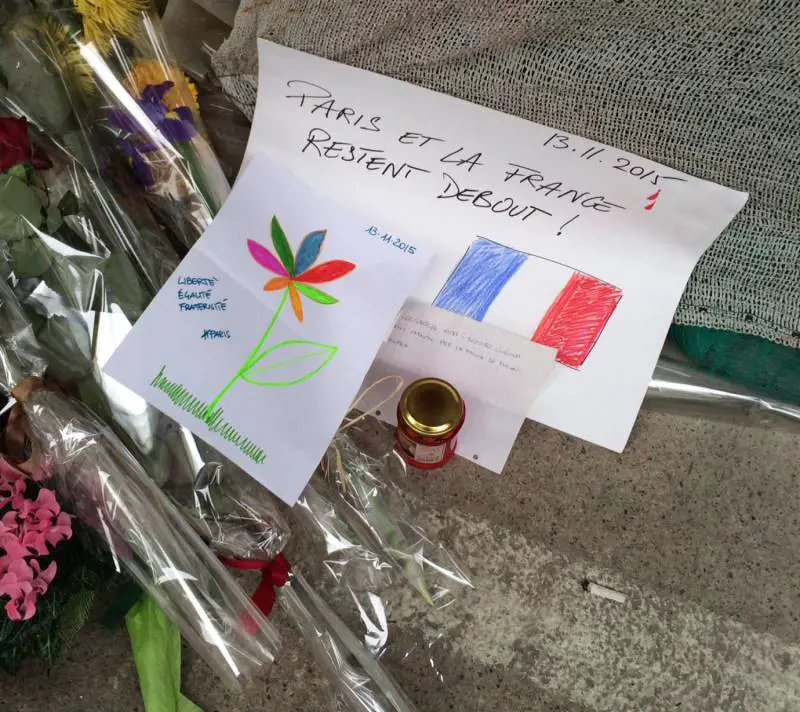 13.11.2015
PARIS ET LA FRANCE
RESTENT DEBOUT !
13.11.2015
LIBERTÉ
ÉGALITÉ
FRATERNITÉ
#PARIS